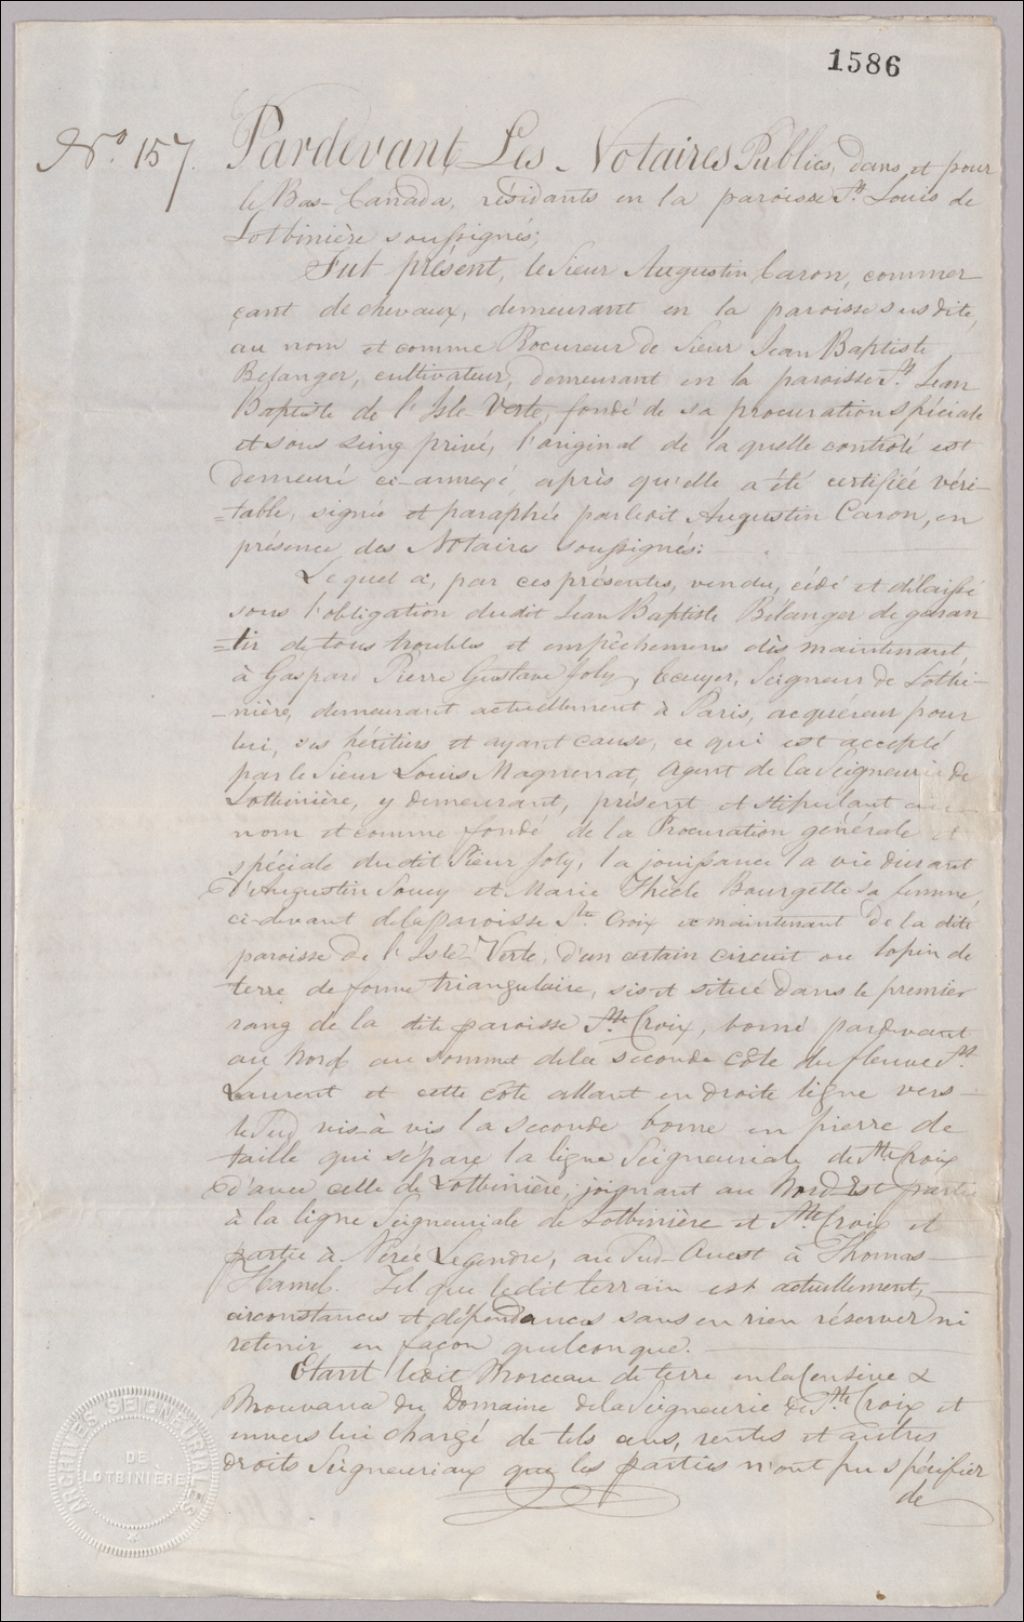 1586
No. 157. Pardevant Les Notaires Publics, dans et pour
le Bas-Canada, résidants en la paroisse St. Louis de
Lotbinière soussignés;
Fut présent, le Sieur Augustin Caron, commer
çant de chevaux, demeurant en la paroisse susdite,
au nom et comme Procureur de Sieur Jean Baptiste
Belanger, cultivateur, demeurant en la paroisse St. Jean
Baptiste de l'Isle Verte, fondé de sa procuration spéciale
et sous seing privé, l'original de la quelle controlé est
demeuré ci-annexé, après qu'elle a été certifiée véri-
=table, signée et paraphée par ledit Augustin Caron, en
présence des Notaires soussignés:
Lequel a, par ces présentes, vendu, cédé et délaissé
sous l'obligation dudit Jean Baptiste Bélanger de garan
=tir de tous troubles et empêchemens dès maintenant,
à Gaspard Pierre Gustave Joly, Ecuyer, Seigneur de Lotbi-
-nière, demeurant actuellement à Paris, acquéreur pour
lui, ses héritiers et ayant cause, ce qui est accepté
par le Sieur Louis Magnenat, Agent de la Seigneurie de
Lotbinière, y demeurant, présent et stipulant au
nom et comme fondé de la Procuration générale et
spéciale dudit Sieur Joly, la jouissance la vie durant
d'Augustin Soucy et Marie Thècle Bourgette sa femme,
ci-devant de la paroisse Ste. Croix et maintenant de la dite
paroisse de l'Isle-Verte, d'un certain circuit ou lopin de
terre de forme triangulaire, sis et situé dans le premier
rang de la dite paroisse Ste. Croix, borné pardevant
au Nord au sommet de la seconde côte du fleuve St.
Laurent et cette côte allant en droite ligne vers
le Sud vis-à vis la seconde borne en pierre de
taille qui sépare la ligne Seigneuriale de Ste. Croix
d'avec celle de Lotbinière; joignant au Nord-Est partie
à la ligne Seigneuriale de Lotbinière et Ste. Croix et
partie à Nérée Legendre, au Sud-Ouest à Thomas
Hamel. Tel que ledit terrain est actuellement,
circonstances et dépendances sans en rien réserver ni
retenir en façon quelconque.
Etant ledit Morceau de terre en la Censive &
Mouvance du Domaine de la Seigneurie de Ste. Croix et
envers lui chargé de tels cens, rentes et autres
droits Seigneuriaux que les parties n'ont pu spécifier
de
ARCHIVES SEIGNEURIALES
DE
LOTBINIÈRE